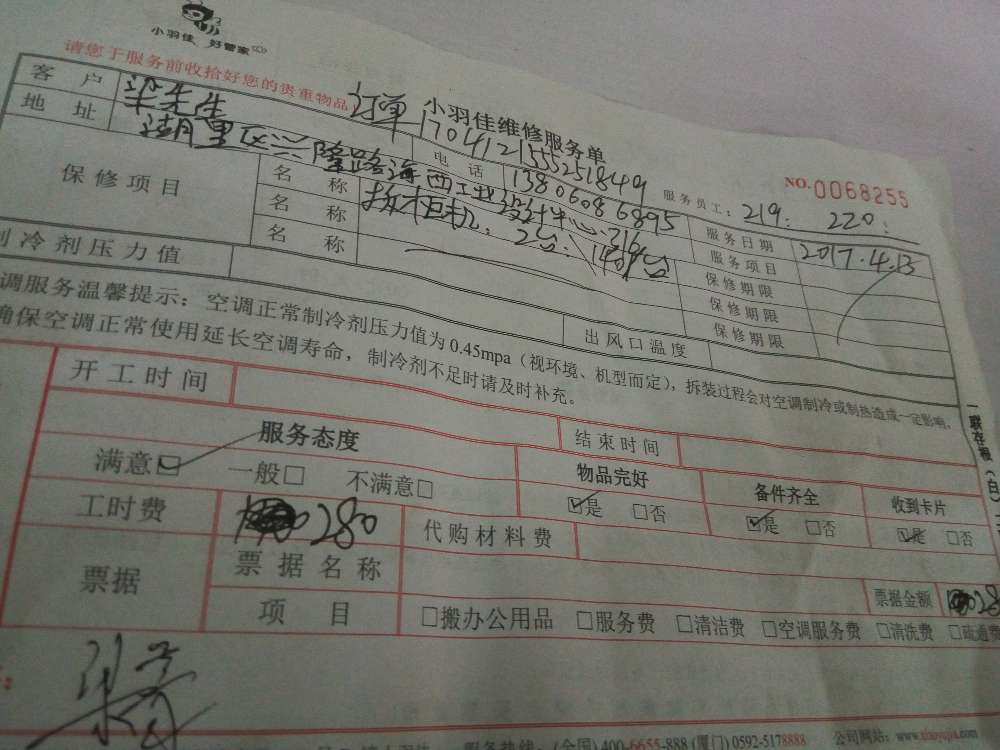 小羽佳 好管家
请您于服务前收拾好您的贵重物品
订单 小羽佳维修服务单
1704121555251849
NO.0068255
客 户 梁先生 电 话 13806086895 服务员工：219： 220：
地 址 湖里区兴隆路海西工业设计中心316 服务日期 2017.4.13
保修项目 名 称 柜机 2台 140/台 服务项目
名 称 保修期限
名 称 保修期限
保修期限
制冷剂压力值 出风口温度
调服务温馨提示：空调正常制冷剂压力值为0.45mpa（视环境、机型而定），拆装过程会对空调制冷或制热造成一定影响，
确保空调正常使用延长空调寿命，制冷剂不足时请及时补充。
开工时间 结束时间
服务态度 物品完好 备件齐全 收到卡片
满意☑ 一般□ 不满意□ ☑是 □否 ☑是 □否 ☑是 □否
工时费 280 代购材料费
票据 票据名称 票据金额 28
项 目 □搬办公用品 □服务费 □清洁费 □空调服务费 □清洗费 □疏通费
一联存根（白）
服务热线：（全国）400-6655-888（厦门）0592-5178888 公司网站：www.xiaoyujia.com